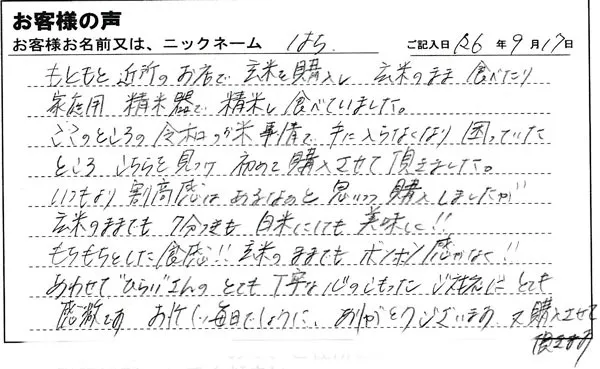 お客様の声
お客様お名前又は、ニックネーム はち ご記入日 R6年9月17日
もともと近所のお店で玄米を購入し 玄米のまま食べたり
家庭用 精米器で精米し食べていました。
ここのところの令和の米事情で手に入らなくなり困っていた
ところ こちらを見つけ 初めて購入させて頂きました。
いつもより割高感はあるなぁと思いつつ購入しましたが
玄米のままでも 7分つきも 白米にしても美味しい!!
もちもちとした食感!! 玄米のままでもボソボソ感がなく!!
あわせて"ひらい"さんのとても丁寧な心のこもった ご対応に とても
感激です お忙しい毎日でしょうに、ありがとうございます 又購入させて
頂きます